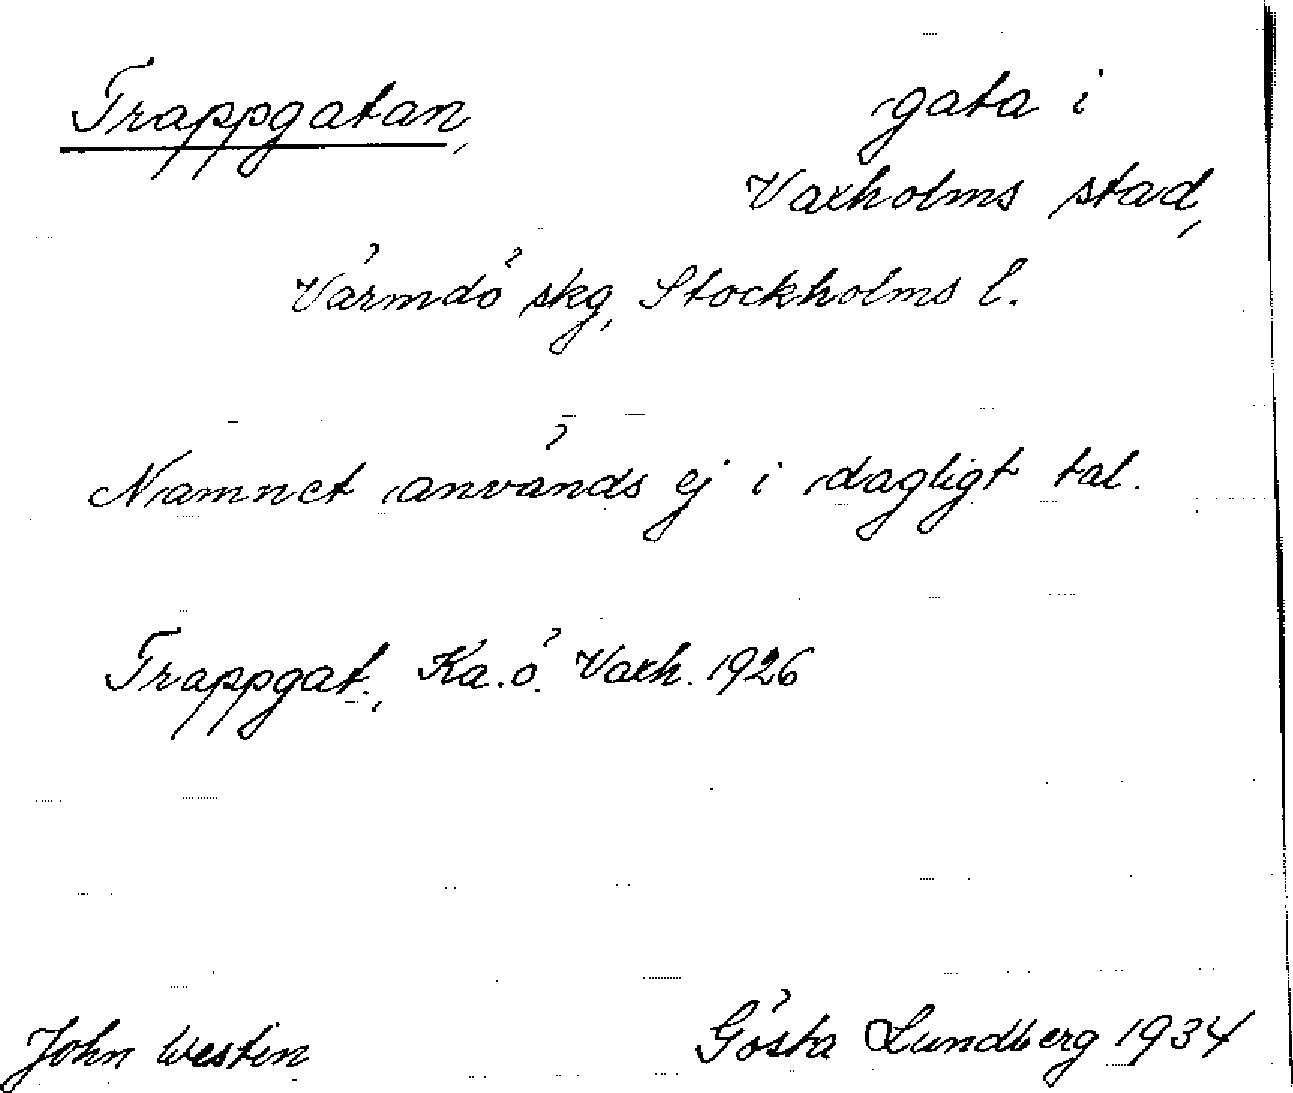 Trappgatan, gata i
Vaxholms stad,
Värmdö skg, Stockholms l.
Namnet användes ej i dagligt tal.
Trappgat., Ka. ö. Vaxh. 1926
John Westin Gösta Lundberg 1934